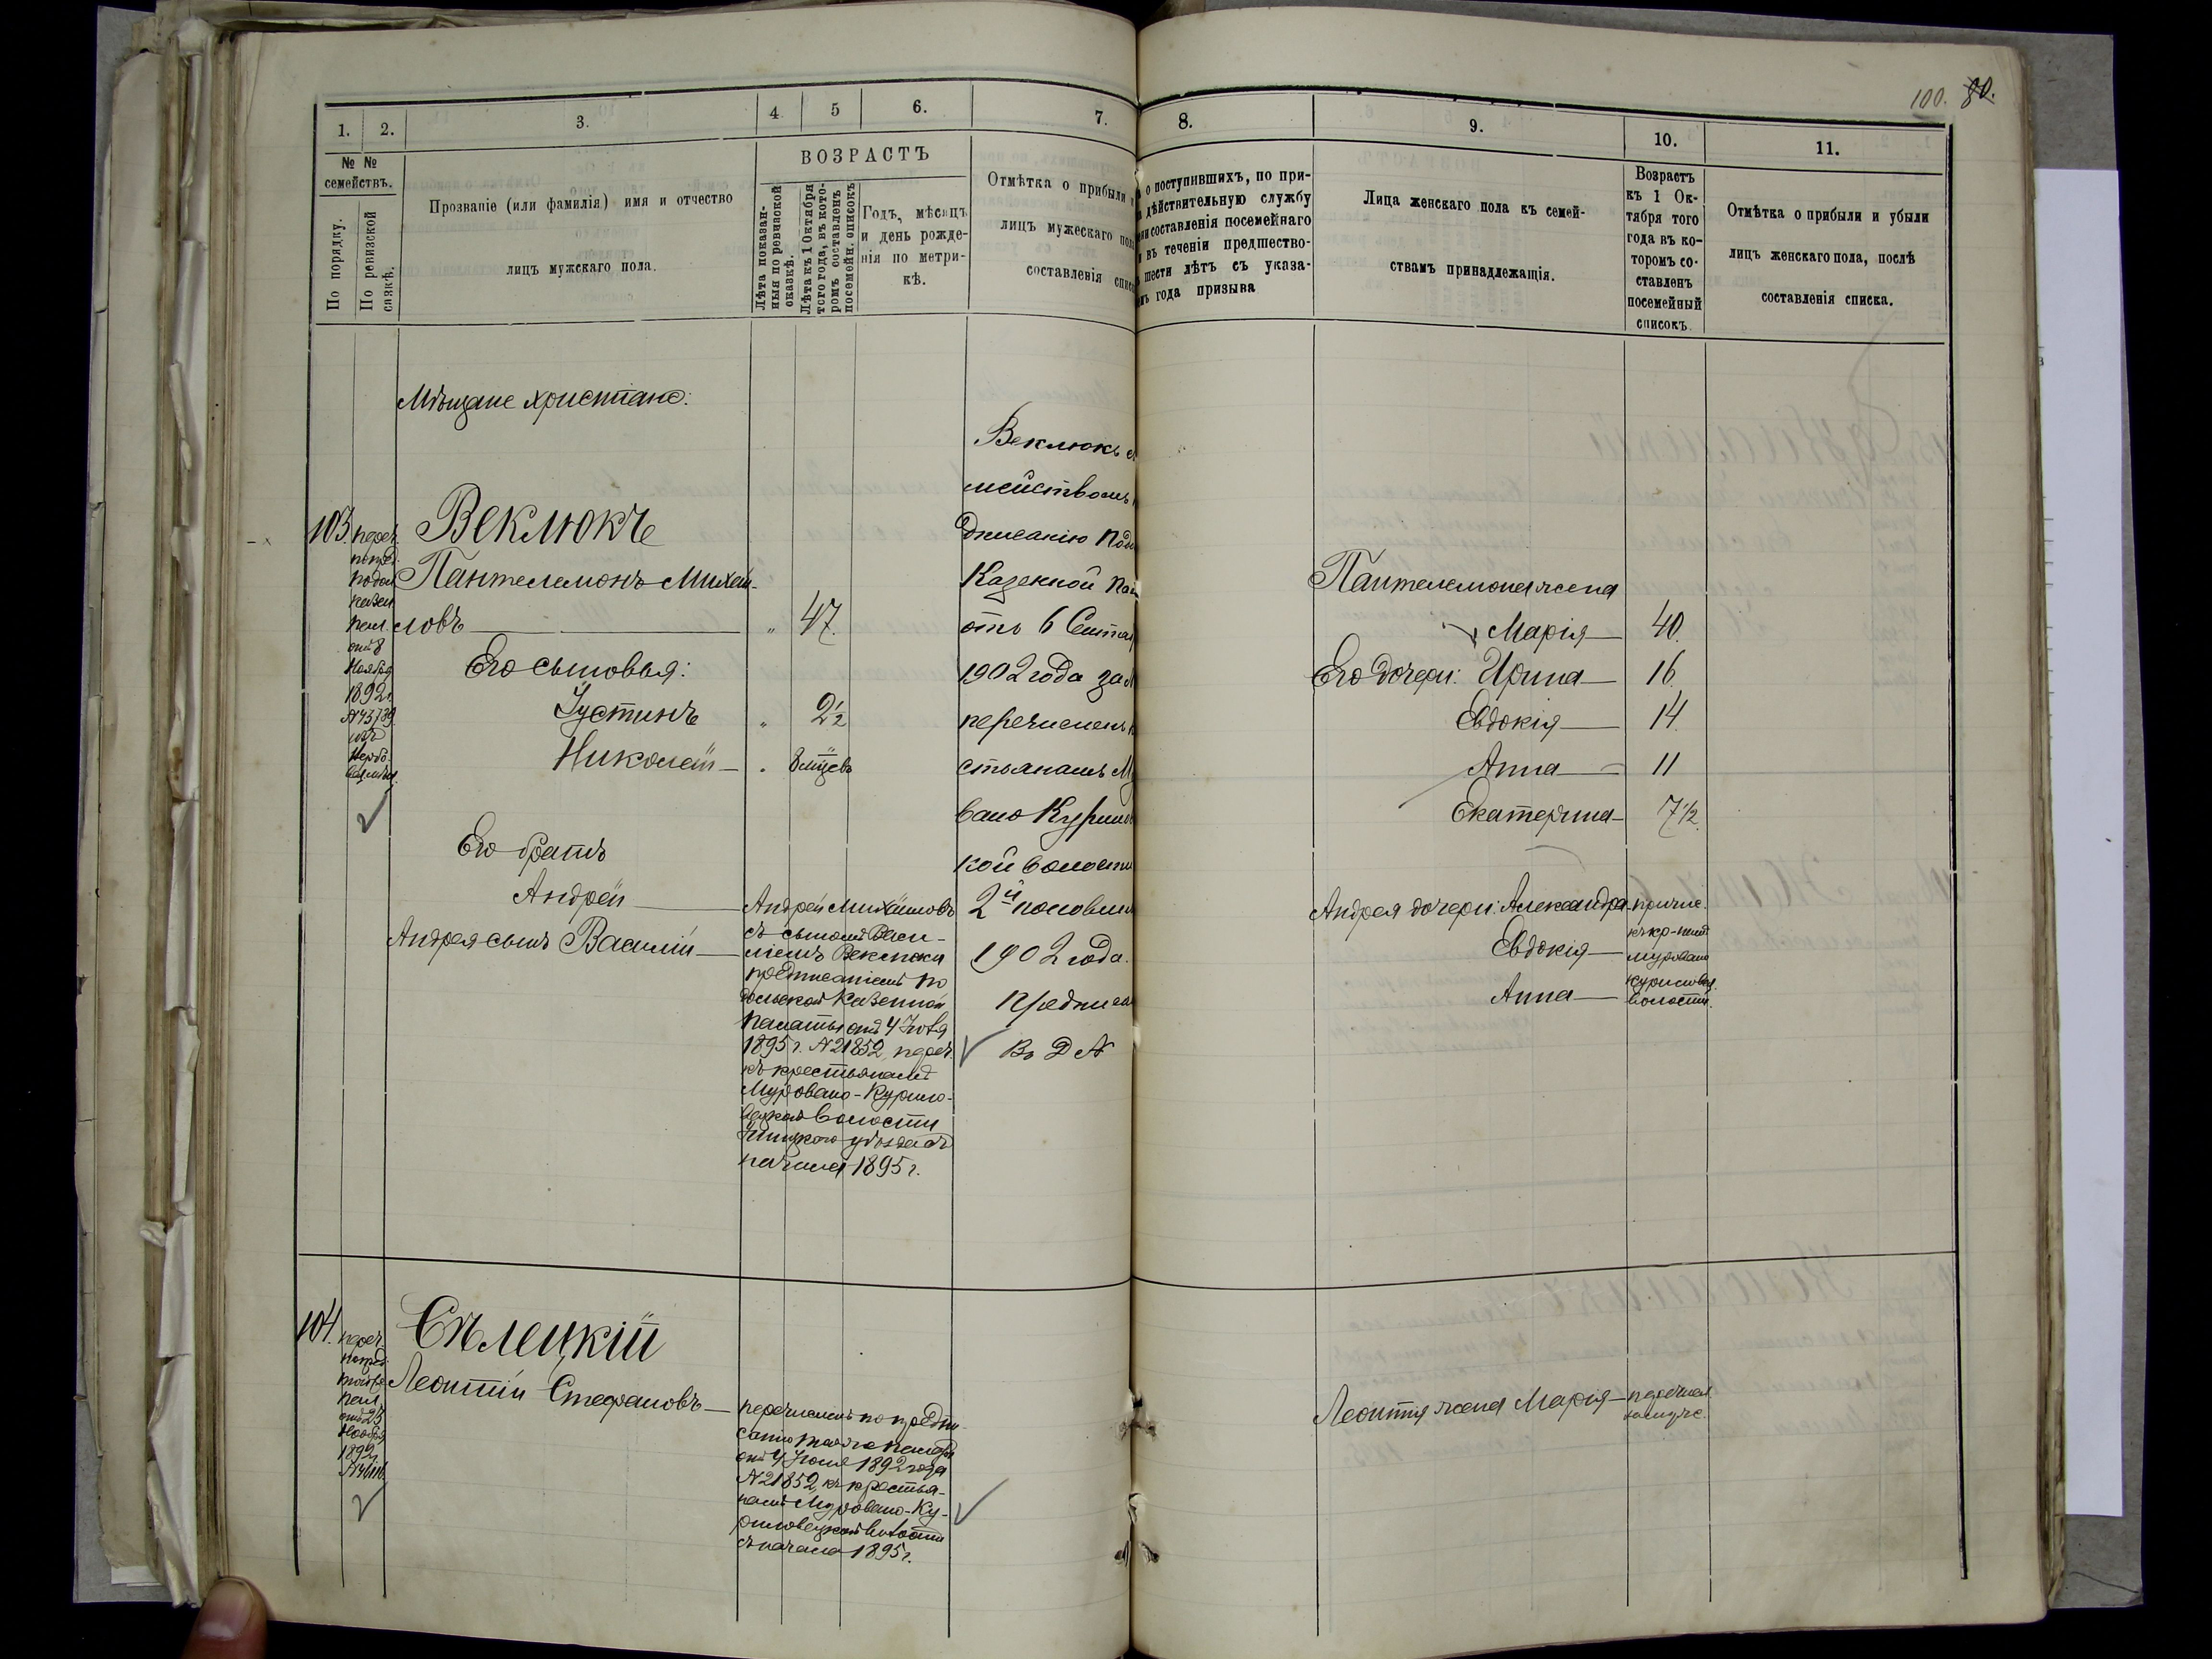 100. 80.
1. 2. 3. 4. 5 6. 7. 8. 9. 10. 11.
№ №
семействъ.
По порядку.
По ревизской сказкѣ.
Прозваніе (или фамилія) имя и отчество
лицъ мужскаго пола.
ВОЗРАСТЪ
Лѣта показан-
ныя по ревизской
сказкѣ.
Лѣта къ 1 Октября
того года, въ кото-
ромъ составленъ
посемейн. списокъ
Годъ, мѣсяцъ
и день рожде-
нія по метри-
кѣ.
Отмѣтка о прибыли и
лицъ мужескаго пола
составленія списка
о поступившихъ, по при-
дѣйствительную службу
составленія посемейнаго
въ теченіи предшество-
шести лѣтъ съ указа-
года призыва
Лица женскаго пола къ семей-
ствамъ принадлежащія.
Возрастъ
къ 1 Ок-
тября того
года въ ко-
торомъ со-
ставленъ
посемейный
списокъ.
Отмѣтка о прибыли и убыли
лицъ женскаго пола, послѣ
составленія списка.
Мѣщане христiане:
103.
переч.
по пред.
подол.
казен.
пал.
отъ 8
Ноября
1892 г.
№43739
изъ
Веклюкъ
Пантелемонъ Михай-
ловъ " 47.
Его сыновья:
Іустинъ " 2½
Николай " 8 мѣцевъ
Его братъ
Андрей
Андрея сынъ Василій
Андрей Михайловъ
съ сыномъ Васи-
ліемъ Веклюки
предписаніемъ По
дольской Казенной
палаты отъ 4 Іюля
1895 г. №21852, переч.
къ крестьянамъ
Муровано-Курило-
вецкой волости
Ушицкаго уѣзда съ
начала 1895 г.
Веклюкъ
мействомъ
дписанію Подо
Казенной Пал
отъ 6 Сентяб
1902 года за №
перечисленъ
стьянамъ Му
вано Курилов
кой волости
2й половины
1902 года.
Предписан
Въ Д №
Пантелемона жена
Марія 40.
Его дочери: Ирина 16.
Евдокія 14.
Анна 11
Екатерина 7½.
Андрея дочери: Александра причис.
Евдокія
Анна
къ кр-намъ
муровано
куриловец.
волости.
104.
переч.
по пред.
той же
пал.
отъ 23
Ноября
1892
Сѣлецкій
Леонтій Стефановъ
перечисленъ по предпи-
санію той же палаты
отъ 4 Іюля 1892 года
№21852, къ крестья-
намъ Муровано-Ку-
риловецкой волости
съ начала 1895 г.
Леонтія жена Марія